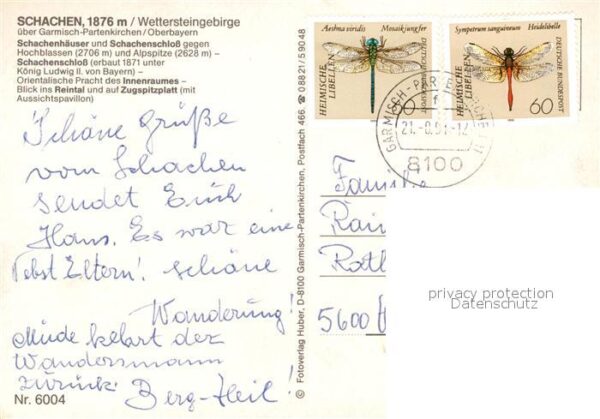 SCHACHEN, 1876 m / Wettersteingebirge
über Garmisch-Partenkirchen / Oberbayern
Schachenhäuser und Schachenschloß gegen
Hochblassen (2706 m) und Alpspitze (2628 m) –
Schachenschloß (erbaut 1871 unter
König Ludwig II. von Bayern) –
Orientalische Pracht des Innenraumes –
Blick ins Reintal und auf Zugspitzplatt (mit
Aussichtspavillon)
Schöne Grüße
vom Schachen
sendet Euch
Hans. Es war eine
schöne
Wanderung!
Müde kehrt der
Wandersmann
zurück.
Berg-Heil!
Nr. 6004
© Fotoverlag Huber, D-8100 Garmisch-Partenkirchen, Postfach 466 ☎ 08821/59048
Aeshna viridis Mosaikjungfer
HEIMISCHE
LIBELLEN
DEUTSCHE BUNDESPOST
60
Sympetrum sanguineum Heidelibelle
HEIMISCHE
LIBELLEN
DEUTSCHE BUNDESPOST
60
GARMISCH-PARTENKIRCHEN
8100
Familie
5600
privacy protection
Datenschutz